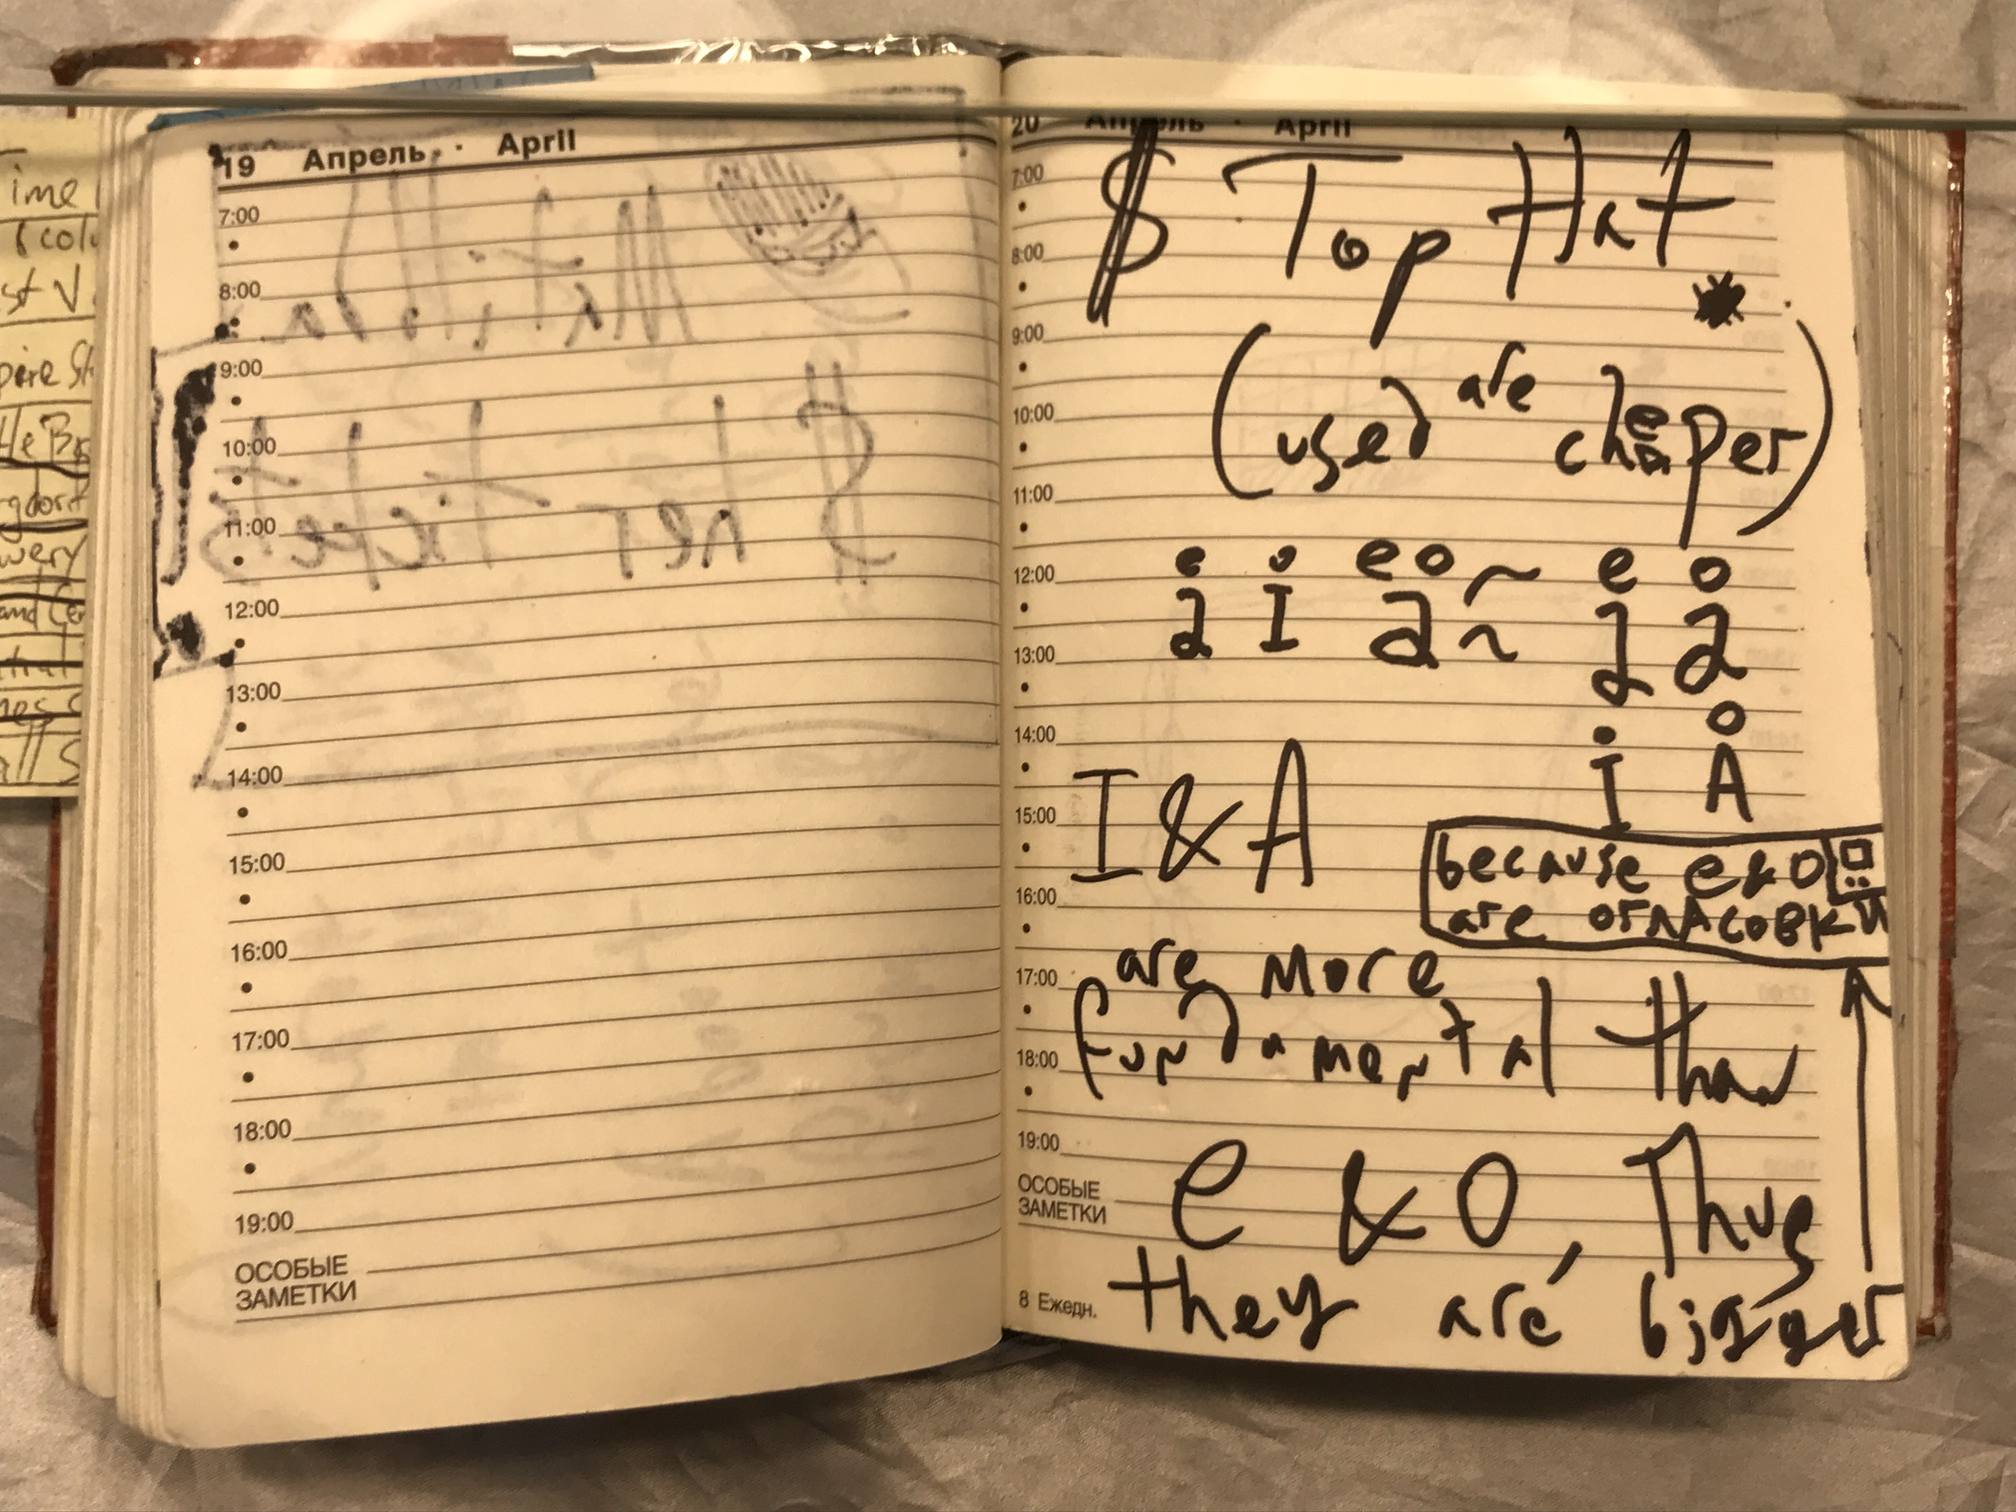 ime
& col
st V
pire St
He Br
gdorf
wery
and Ce
ntral
mes S
all S
19 Апрель · April
7:00
8:00
9:00
10:00
11:00
12:00
13:00
14:00
15:00
16:00
17:00
18:00
19:00
ОСОБЫЕ
ЗАМЕТКИ
20 Апрель · April
7:00
8:00
9:00
10:00
11:00
12:00
13:00
14:00
15:00
16:00
17:00
18:00
19:00
ОСОБЫЕ
ЗАМЕТКИ
8 Ежедн.
$ Top Hat
(used are cheper)
e o e o ~ e o
a I a ~ a a
o o
I A
I & A
because e & o
are огласовки
are more
fundamental than
e & o, Thus
they are bigger